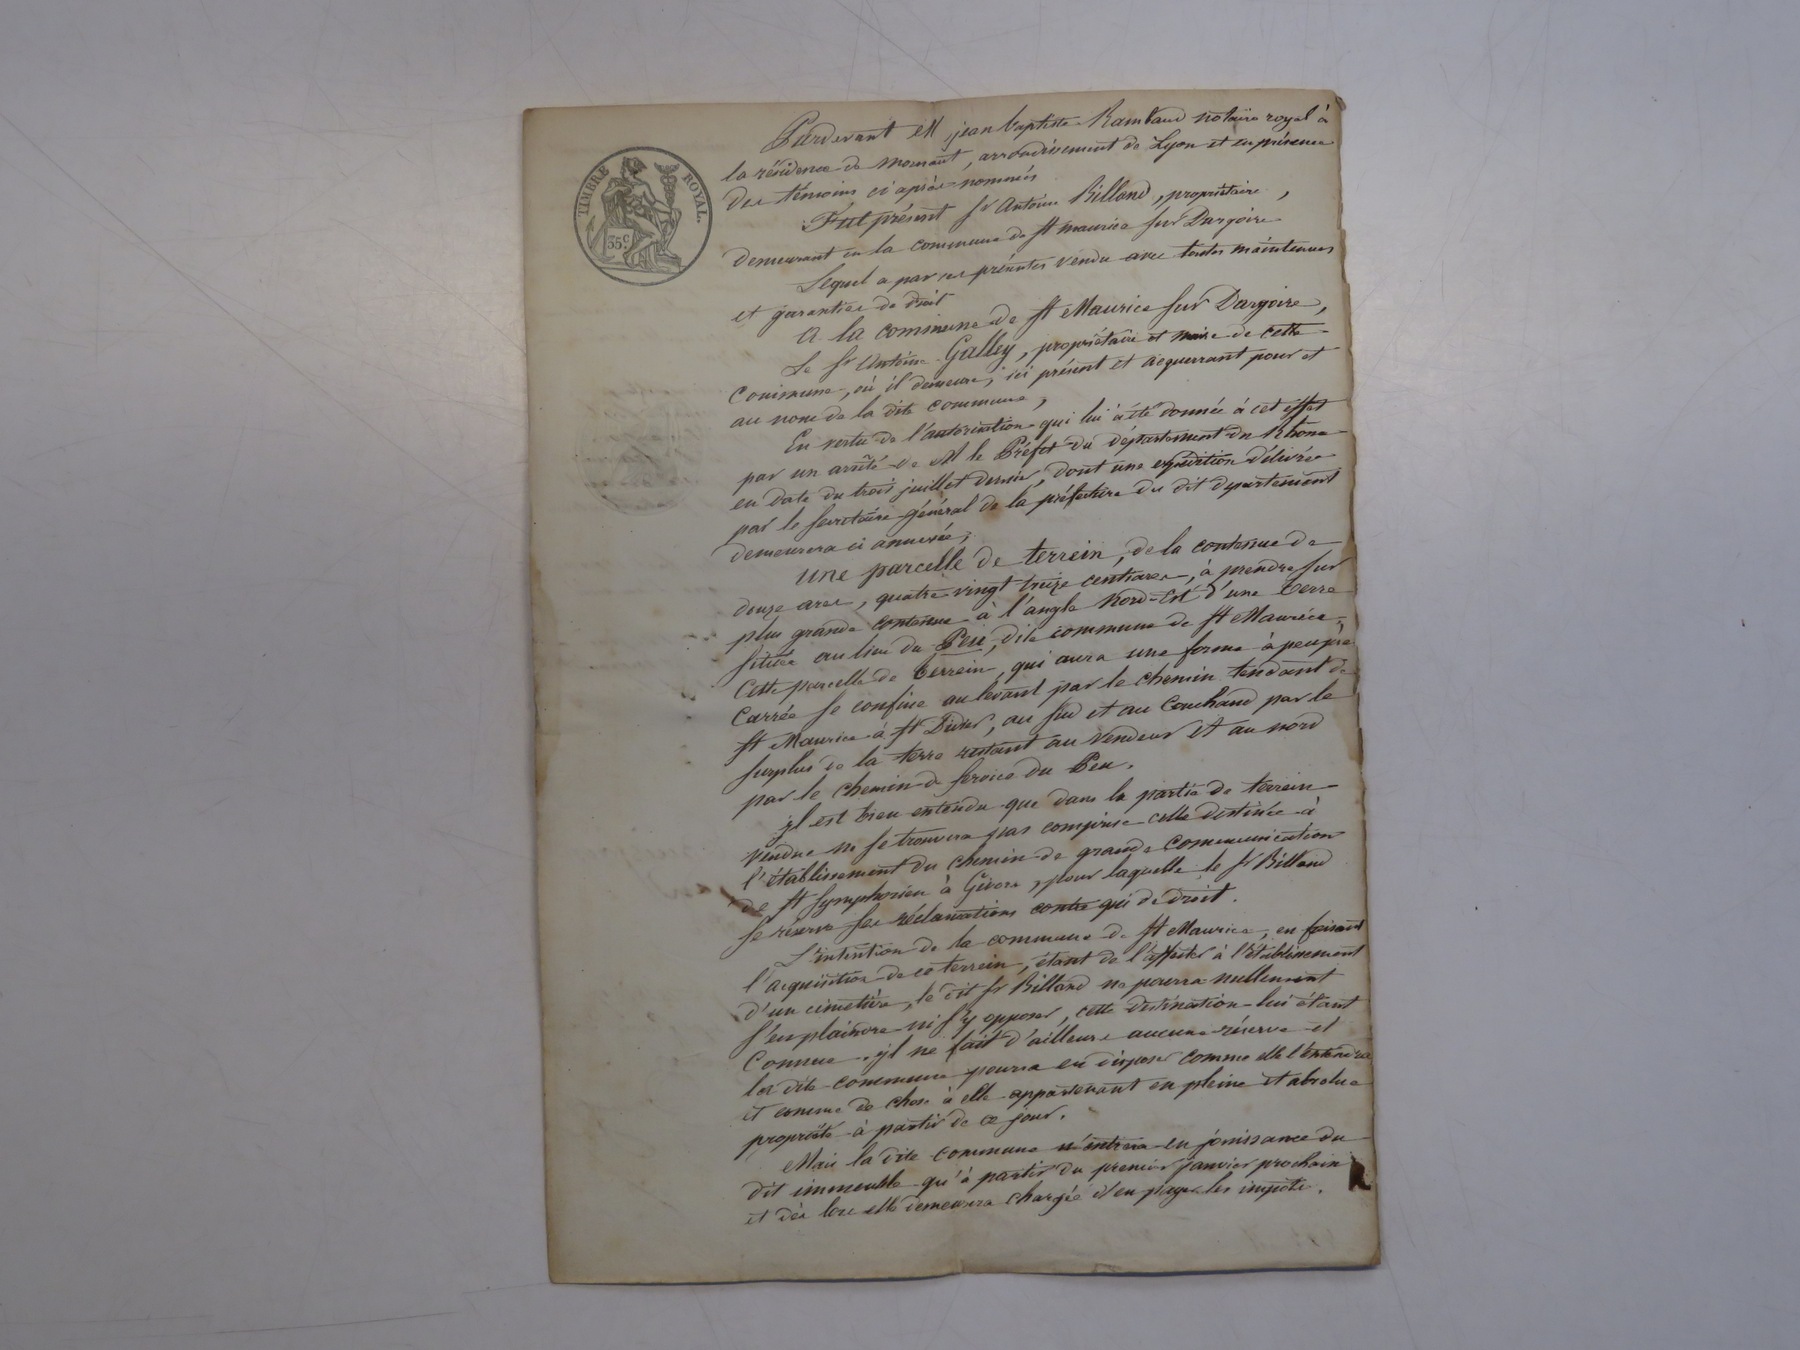 TIMBRE ROYAL.
35c
Pardevant M jean baptiste Rambaud notaire royal à
la résidence de mornant, arrondissement de Lyon et en présence
des témoins ci après nommés
Fut présent Sr Antoine Billand, propriétaire,
demeurant en la commune de St maurice sur Dargoire
Lequel a par ces présentes vendu avec toutes maintenues
et garanties de droit
A la commune de St Maurice sur Dargoire,
Le Sr Antoine Galley, propriétaire et maire de cette
commune, où il demeure, ici présent et acquerrant pour et
au nom de la dite commune,
En vertu de l'autorisation qui lui a été donnée à cet effet
par un arrêté de M le Préfet du département du Rhône
en date du trois juillet dernier, dont une expédition délivrée
par le secrétaire général de la préfecture du dit département
demeurera ci annexée,
Une parcelle de terrein, de la contenue de
douze ares, quatre vingt treize centiares, à prendre sur
plus grande contenue à l'angle Nord-Est d'une terre
située au lieu du Peu, dite commune de St Maurice.
Cette parcelle de terrein, qui aura une forme à peuprès
carrée se confine au levant par le chemin tendant de
St Maurice à St Didier, au sud et au couchand par le
surplus de la terre restant au vendeur et au nord
par le chemin de service du Peu.
Il est bien entendu que dans la partie de terrein
vendue ne se trouvera pas comprise celle destinée à
l'établissement du chemin de grande communication
de St Symphorien à Givors, pour laquelle le Sr Billand
se réserve ses réclamations contre qui de droit.
L'intention de la commune de St Maurice, en faisant
l'acquisition de ce terrein, étant de l'affecter à l'établissement
d'un cimetière, le dit Sr Billand ne pourra nullement
s'en plaindre ni s'y opposer, cette destination lui étant
connue. Il ne fait d'ailleurs aucune réserve et
la dite commune pourra en disposer comme elle l'entendra
et comme de chose à elle appartenant en pleine et absolue
propriété à partir de ce jour.
Mais la dite commune n'entrera en jouissance du
dit immeuble qu'à partir du premier janvier prochain
et dès lors elle demeurera chargée d'en payer les impôts.